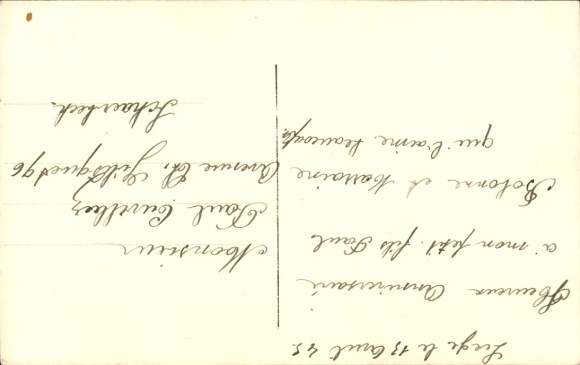 Liege le 13 Avril 45
Heureux Anniversaire
a mon petit fils Paul
Bobonne et Marraine
qui l'aime beaucoup
Monsieur
Paul Cuvellier
Avenue Ch. Gilisquet 96
Schaerbeek.